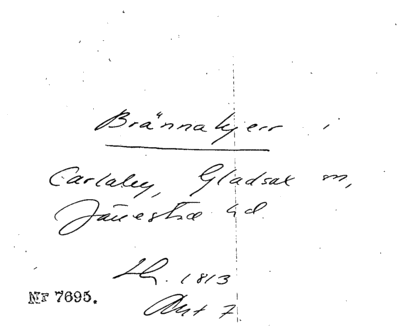 Brännakjerr i
Carlaby, Gladsax m,
Järrestad hd
Lh. 1813
Akt 7
Nr 7695.